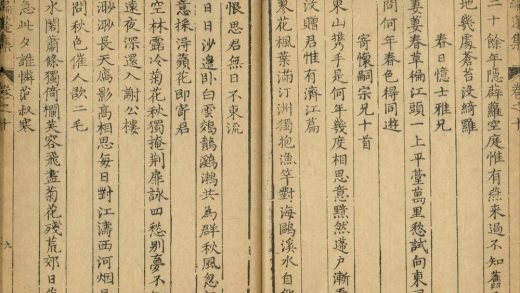 三十餘年隱薜蘿空庭惟有燕來過不知舊
地幾處蒼苔沒綺羅
春日憶士雅兄
萋萋春草徧江頭一上平臺萬里愁試向東
問何年春色得同遊
寄懷嗣宗兄十首
東山携手是何年幾度相思意黯然蓬戶漸
沒贈君惟有濟江篇
花楓葉滿汀洲獨抱漁竿對海鷗溪水自能
恨思君無日不東流
日日沙邊卧白雲鵁鶄鸂鶒共為群秋風忽
意採得蘋花即寄君
空林露冷菊花秋獨掩荆扉詠四愁別夢不
遠夜深還入謝公樓
渺渺長天鴈影高相思每日對江濤西河烟
問秋色催人欲二毛
水閣蕭條獨倚欄芙容飛盡菊花殘荒郊日
急此夕誰憐弟叔寒
選集
卷之十
九